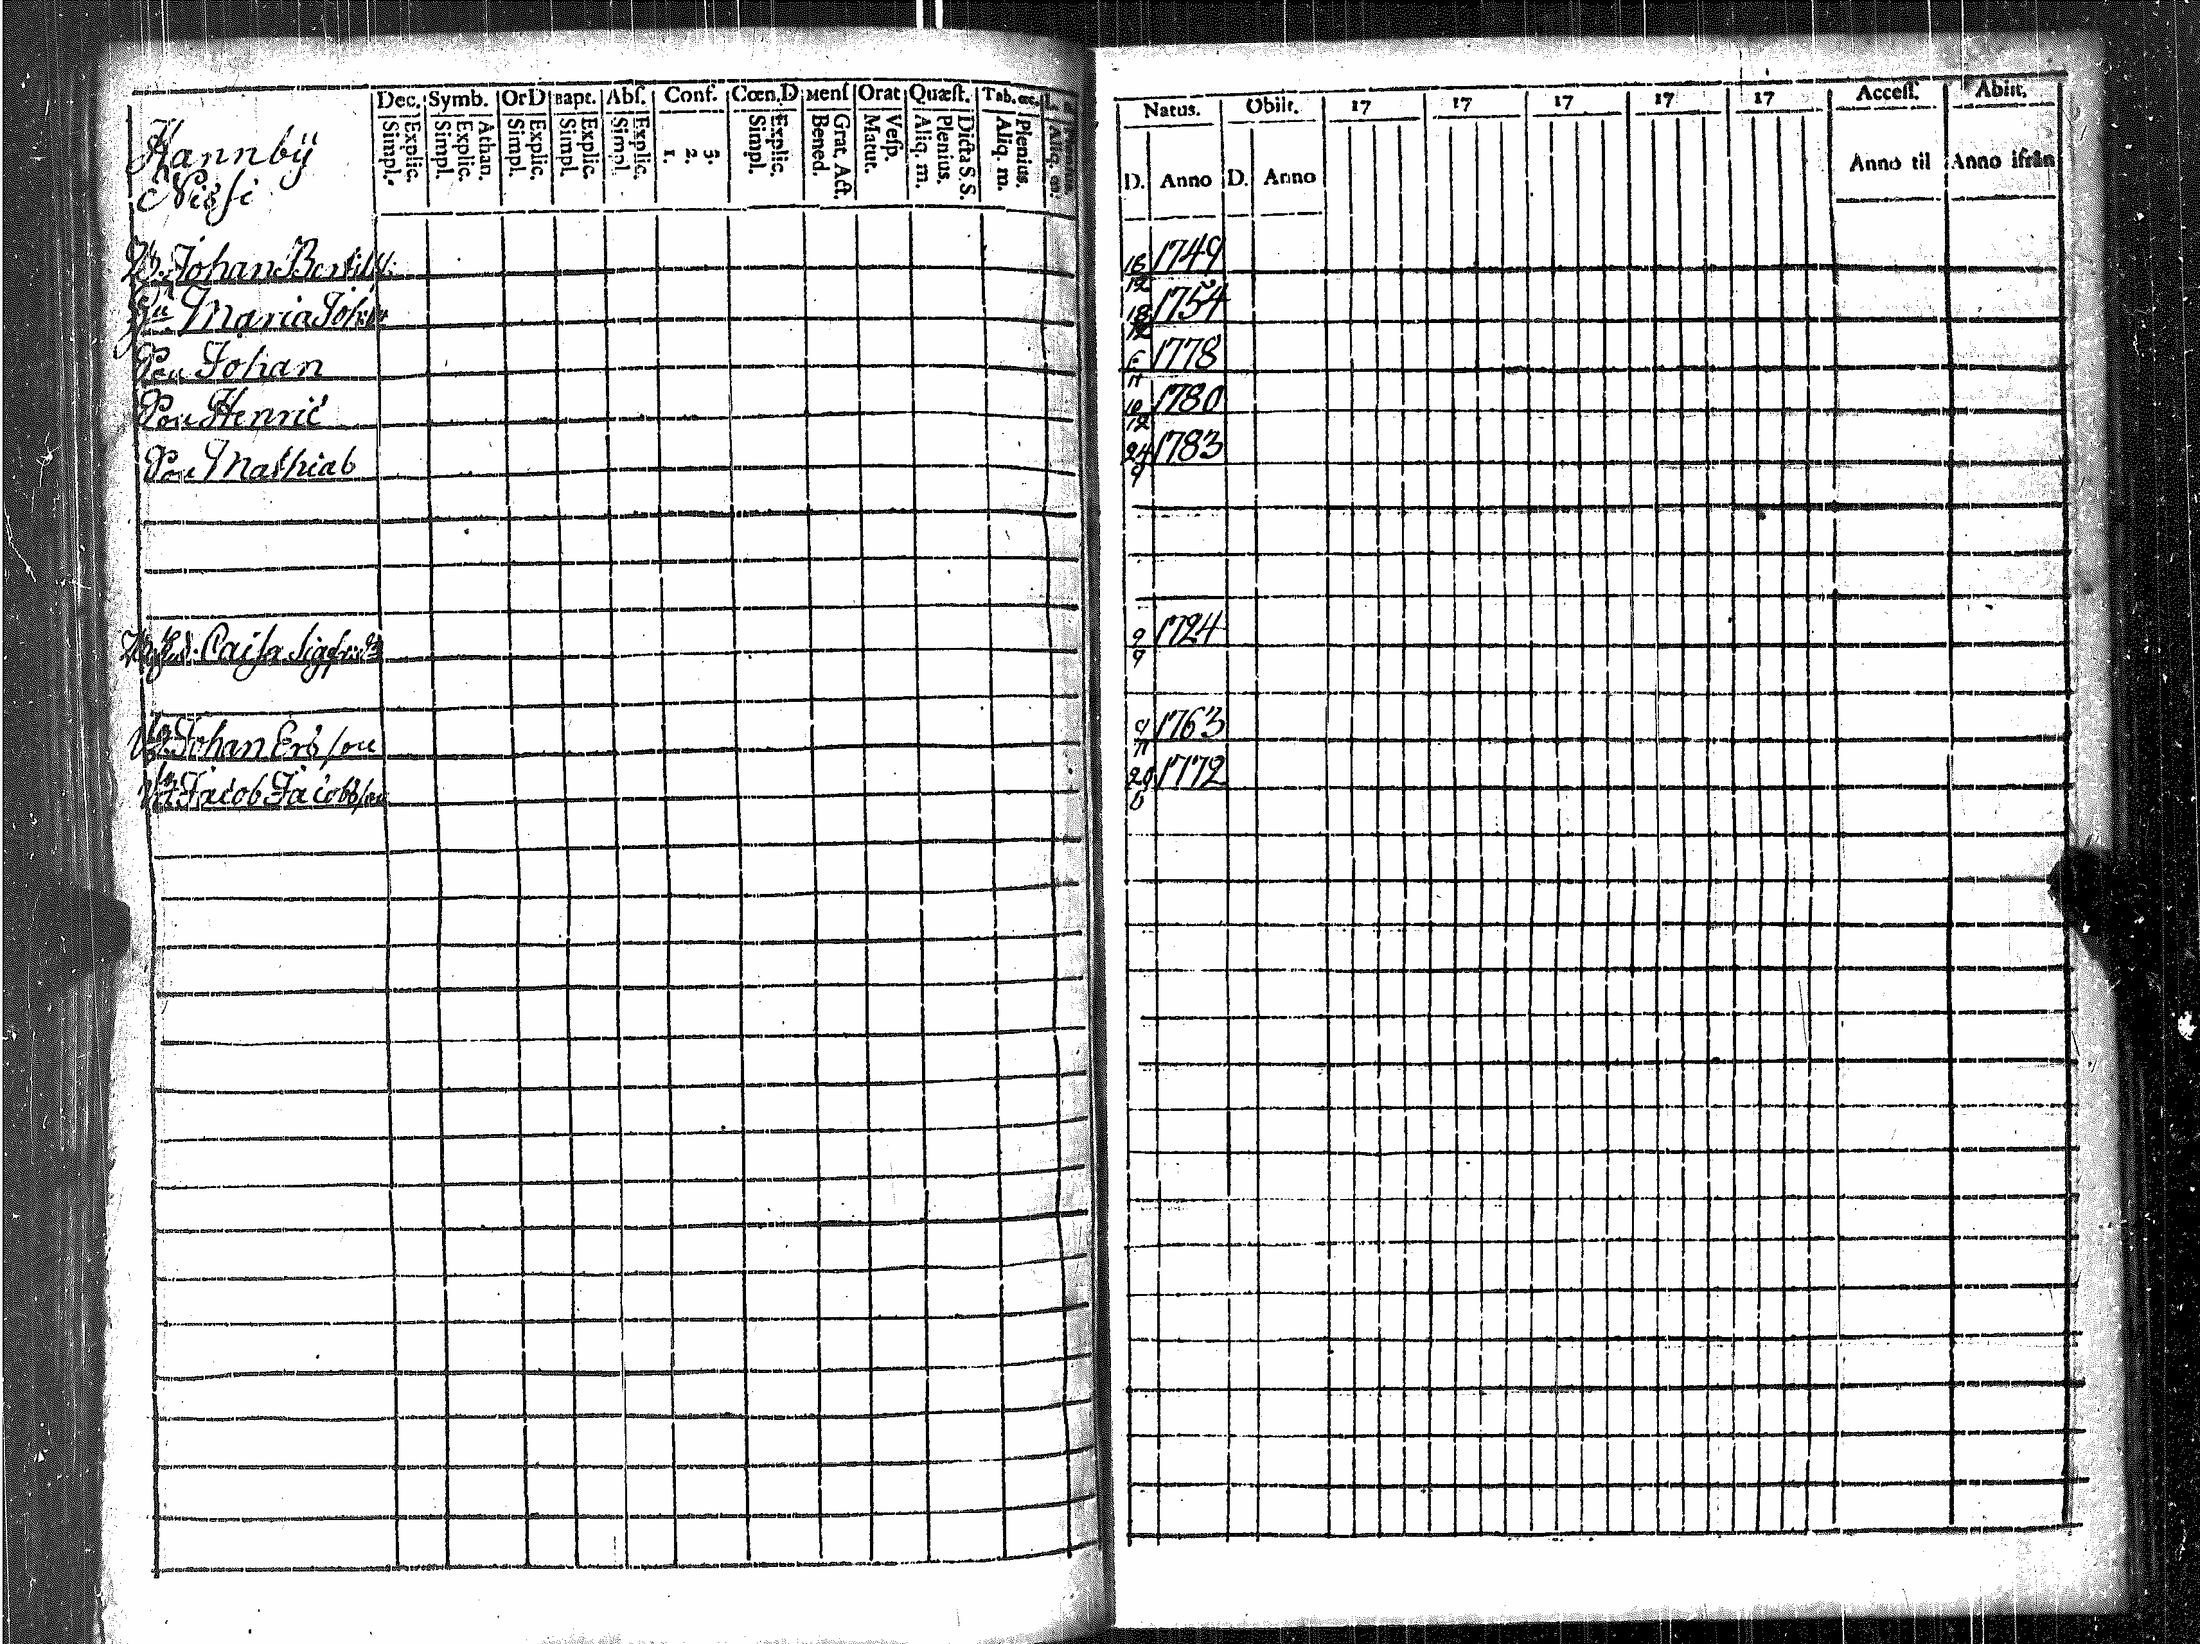 Dec. Symb. OrD Bapt. Abſ. Conf. Cœn.D Menſ Orat Quæſt. Tab. œc.
Simpl. Explic. Simpl. Explic. Athan. Simpl. Explic. Simpl. Explic. Simpl. Explic. 1. 2. 3. Simpl. Explic. Bened. Grat. Act. Matut. Veſp. Aliq. m. Plenius. Dicta S.S. Aliq. m. Plenius.
Hannby
Nissi
Johan Bertilss:
Maria Joh:
Son Johan
Son Henric
Son Mathias
Caisa Sigfrids
Johan Ers son
Jacob Jacobsson
Natus. Obiit. 17 17 17 17 17 Acceſſ. Abiit.
D. Anno D. Anno Anno til Anno ifrån
18/12 1749
18/12 1754
6/11 1778
10/12 1780
24/9 1783
9/9 1724
9/11 1763
20/6 1772